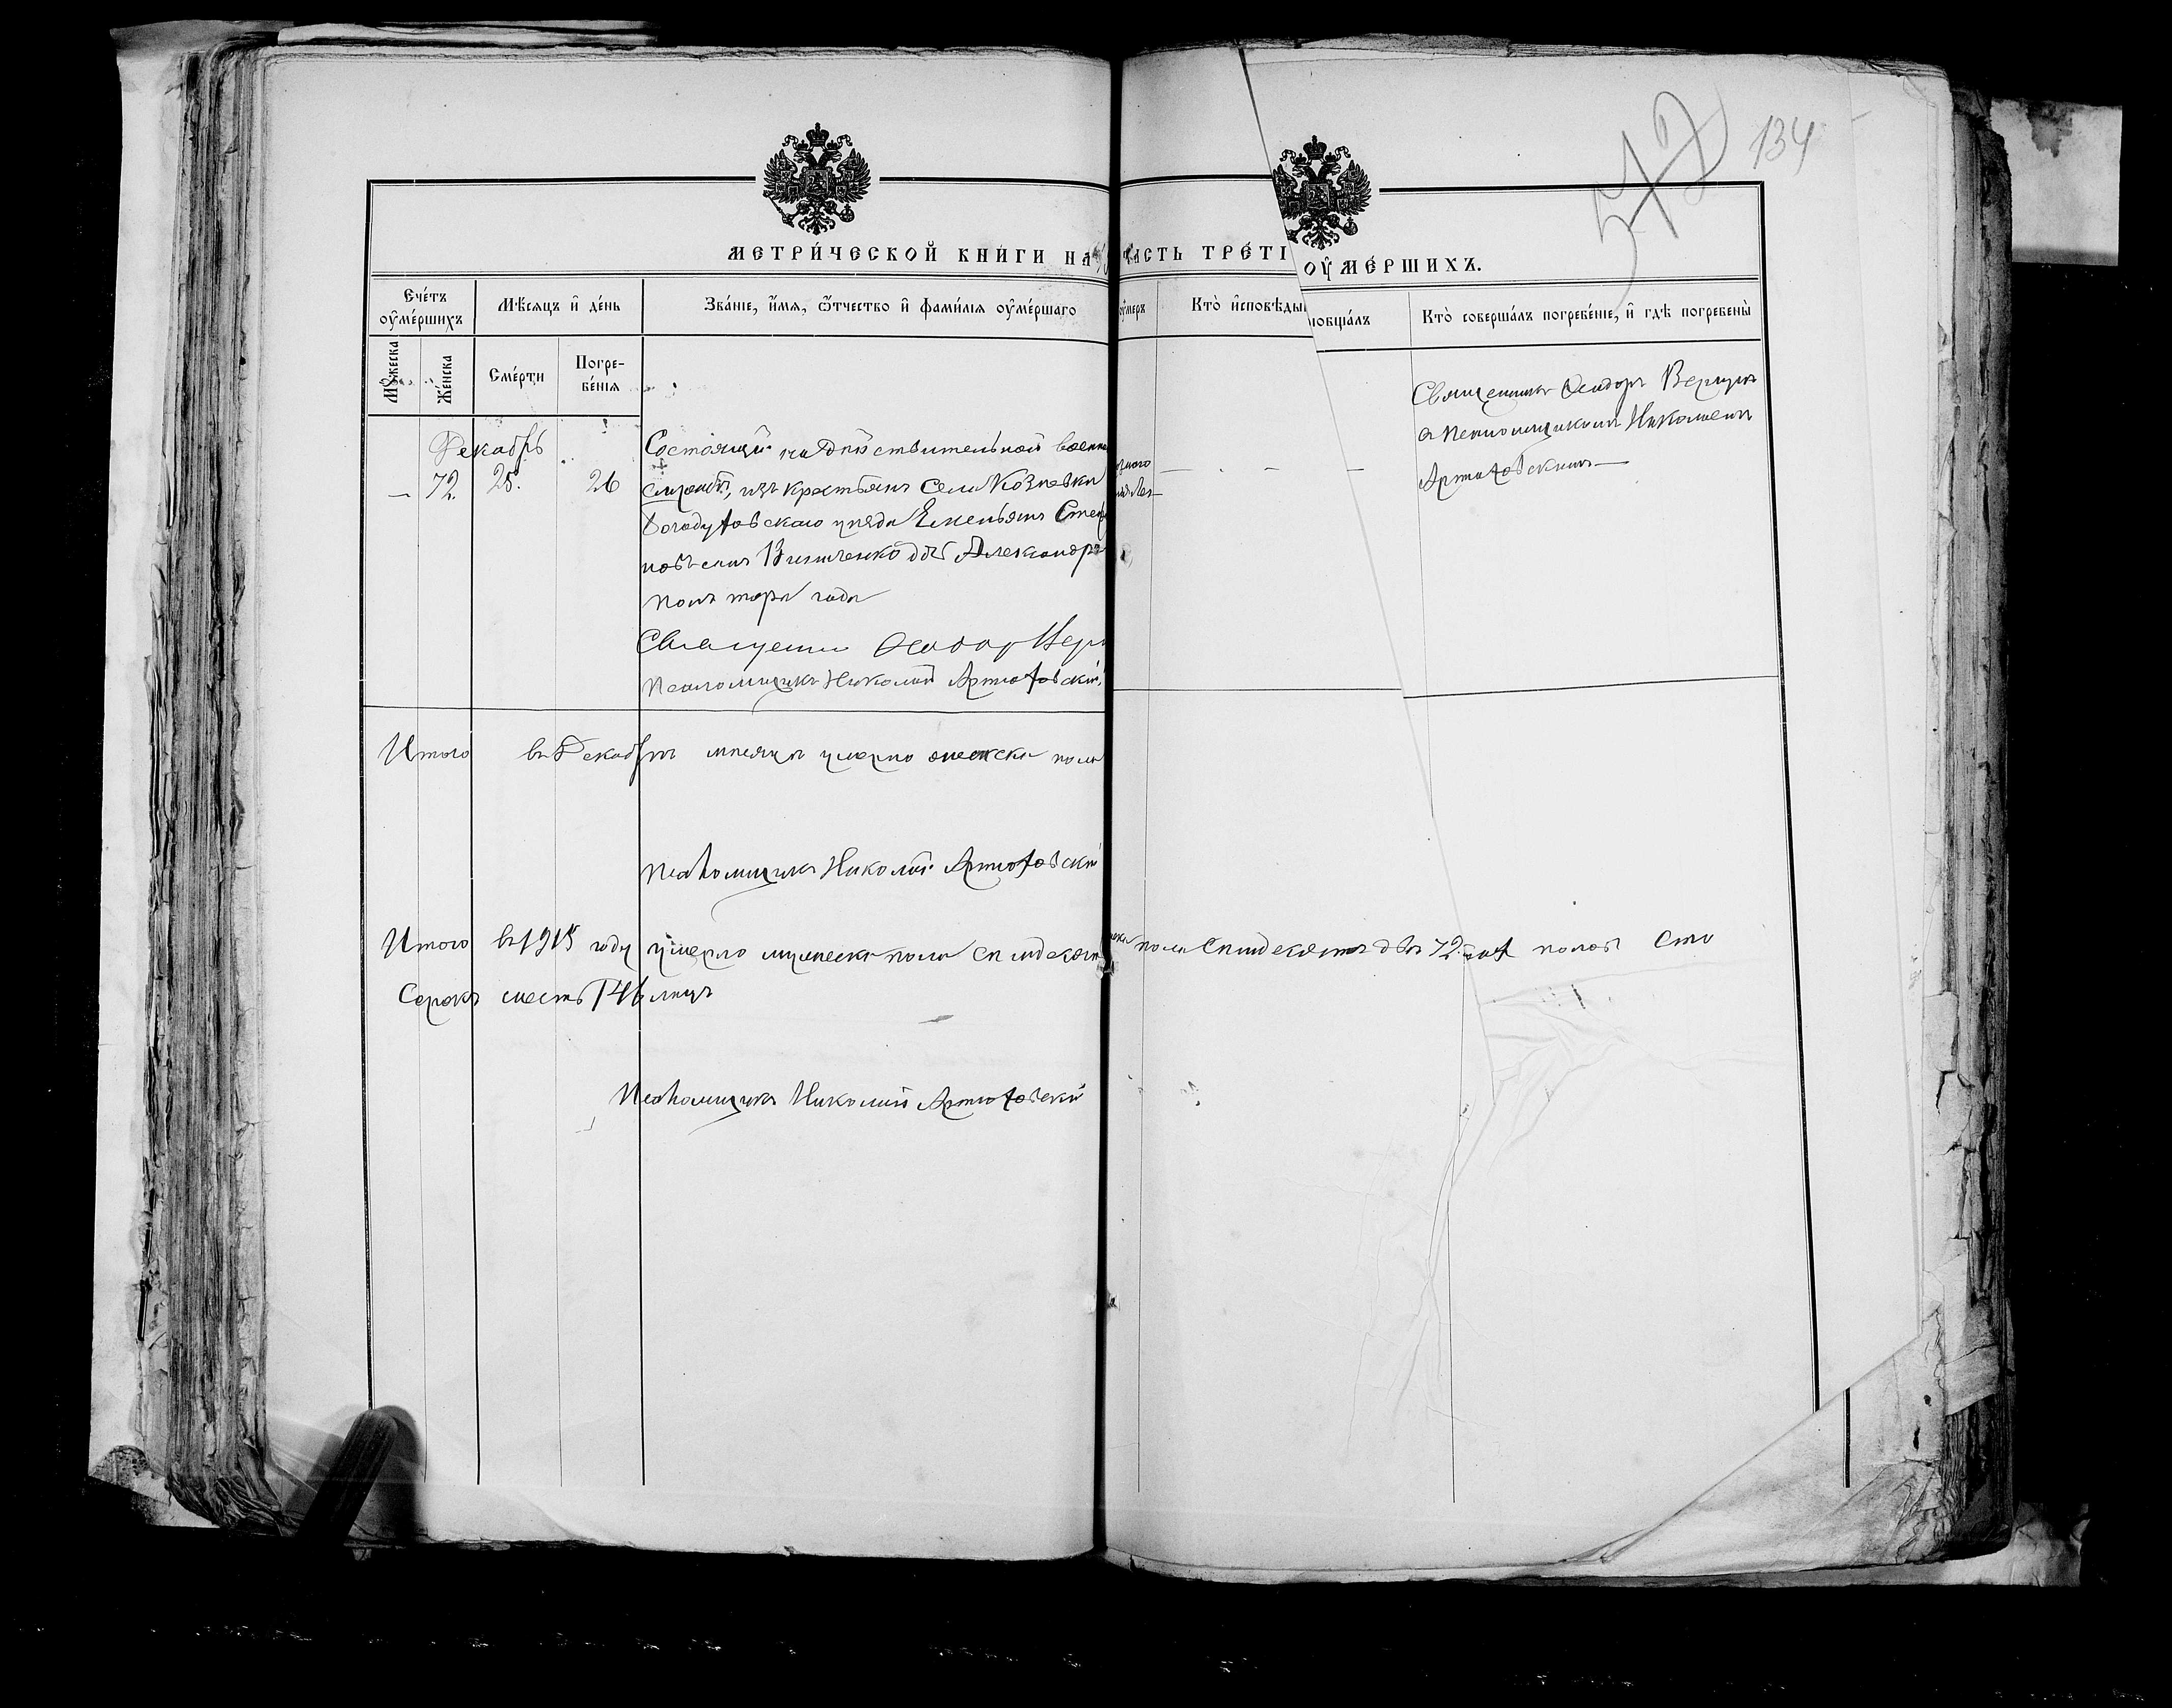 134
МЕТРИ́ЧЕСКОЙ КНИ́ГИ НА
ЧАСТЬ ТРЕ́ТІ
ОУ҆МЕ́РШИХЪ.
Сче́тъ оу҆ме́ршихъ
Мѣ́сяцъ и҆ де́нь
Зва́нїе, и҆́мя, ѻ҆́тчество и҆ фами́лїя оу҆ме́ршаго
оу҆меръ
Кто̀ и҆сповѣ́ды
їобща́лъ
Кто̀ соверша́лъ погребе́нїе, и҆ гдѣ̀ погребены̀
Мꙋ́жеска
Же́нска
Сме́рти
Погре-
бе́нїя
Декабрь
— 72. 25. 26
Состоящій на дѣйствительной военн
службѣ, изъ крестьянъ села Козѣевки
Богодуховскаго уѣзда Емельянъ Степ
новъ сынъ дочь Александра
полтора года
Священникъ Ѳеодоръ
Псаломщикъ Николай Артюховскій
Священникъ Ѳеодоръ
съ псаломщикомъ Николаемъ
Артюховскимъ —
Итого въ Декабрѣ мѣсяцѣ умерло женска пола
Псаломщикъ Николай Артюховскій
Итого въ 1915 году умерло мужеска пола семьдесят
пола семьдесятъ два 72. полов Сто
Сорокъ шесть 146 лицъ
Псаломщикъ Николай Артюховскій